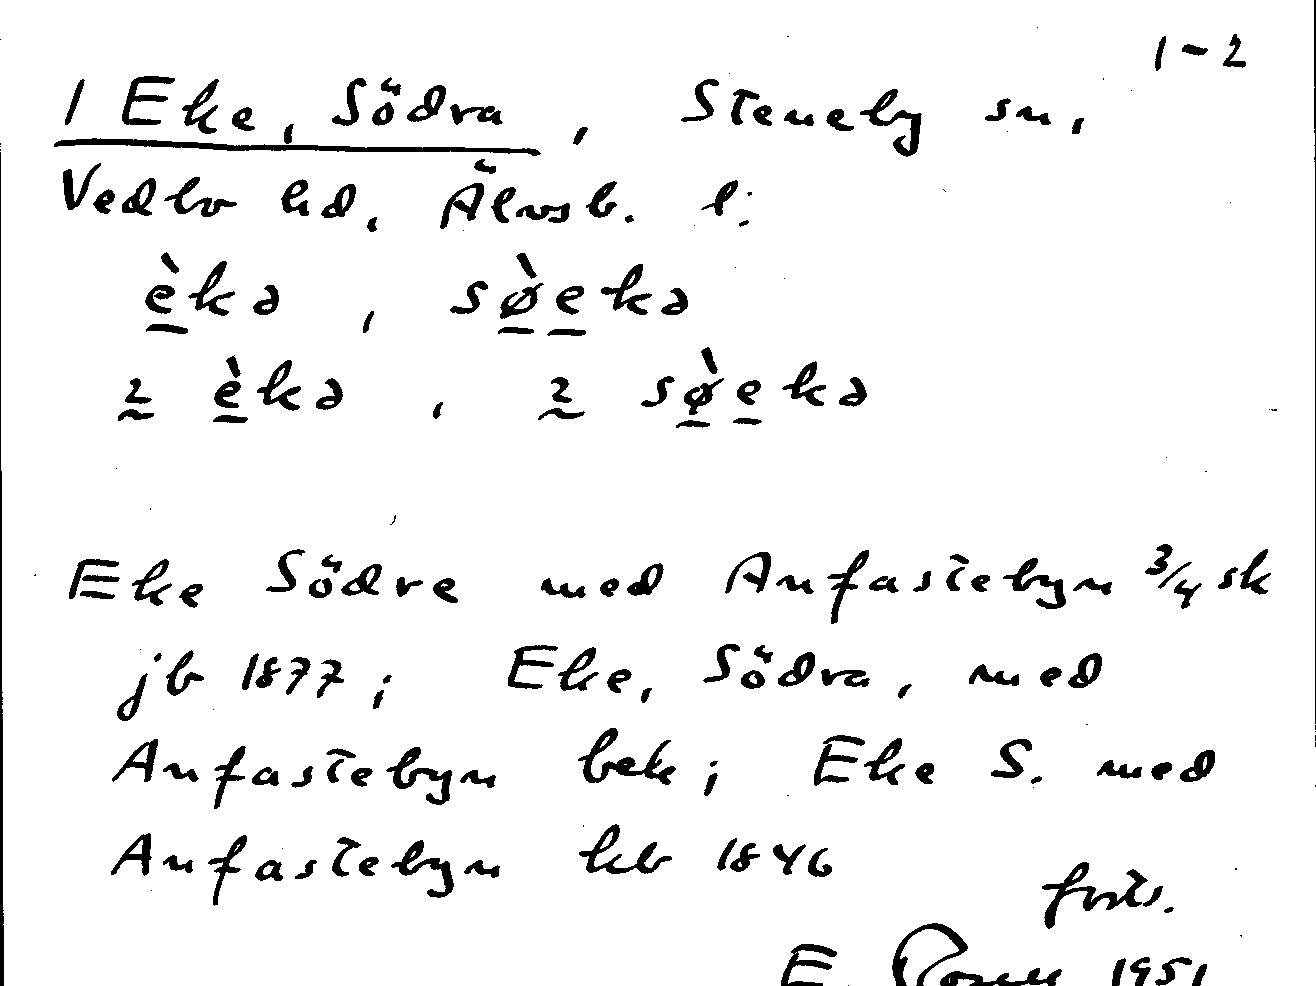 1-2
1 Eke, Södra, Steneby sn,
Vedbo hd, Älvsb. l:
è̲kə, sø̲̀e̲kə
2̰ è̲kə, 2̰ sø̲̀e̲kə
Eke Södre med Anfastebyn 3/4 sk
jb 1877; Eke, Södra, med
Anfastebyn bek; Eke S. med
Anfastebyn kb 1846
forts.
E 1951